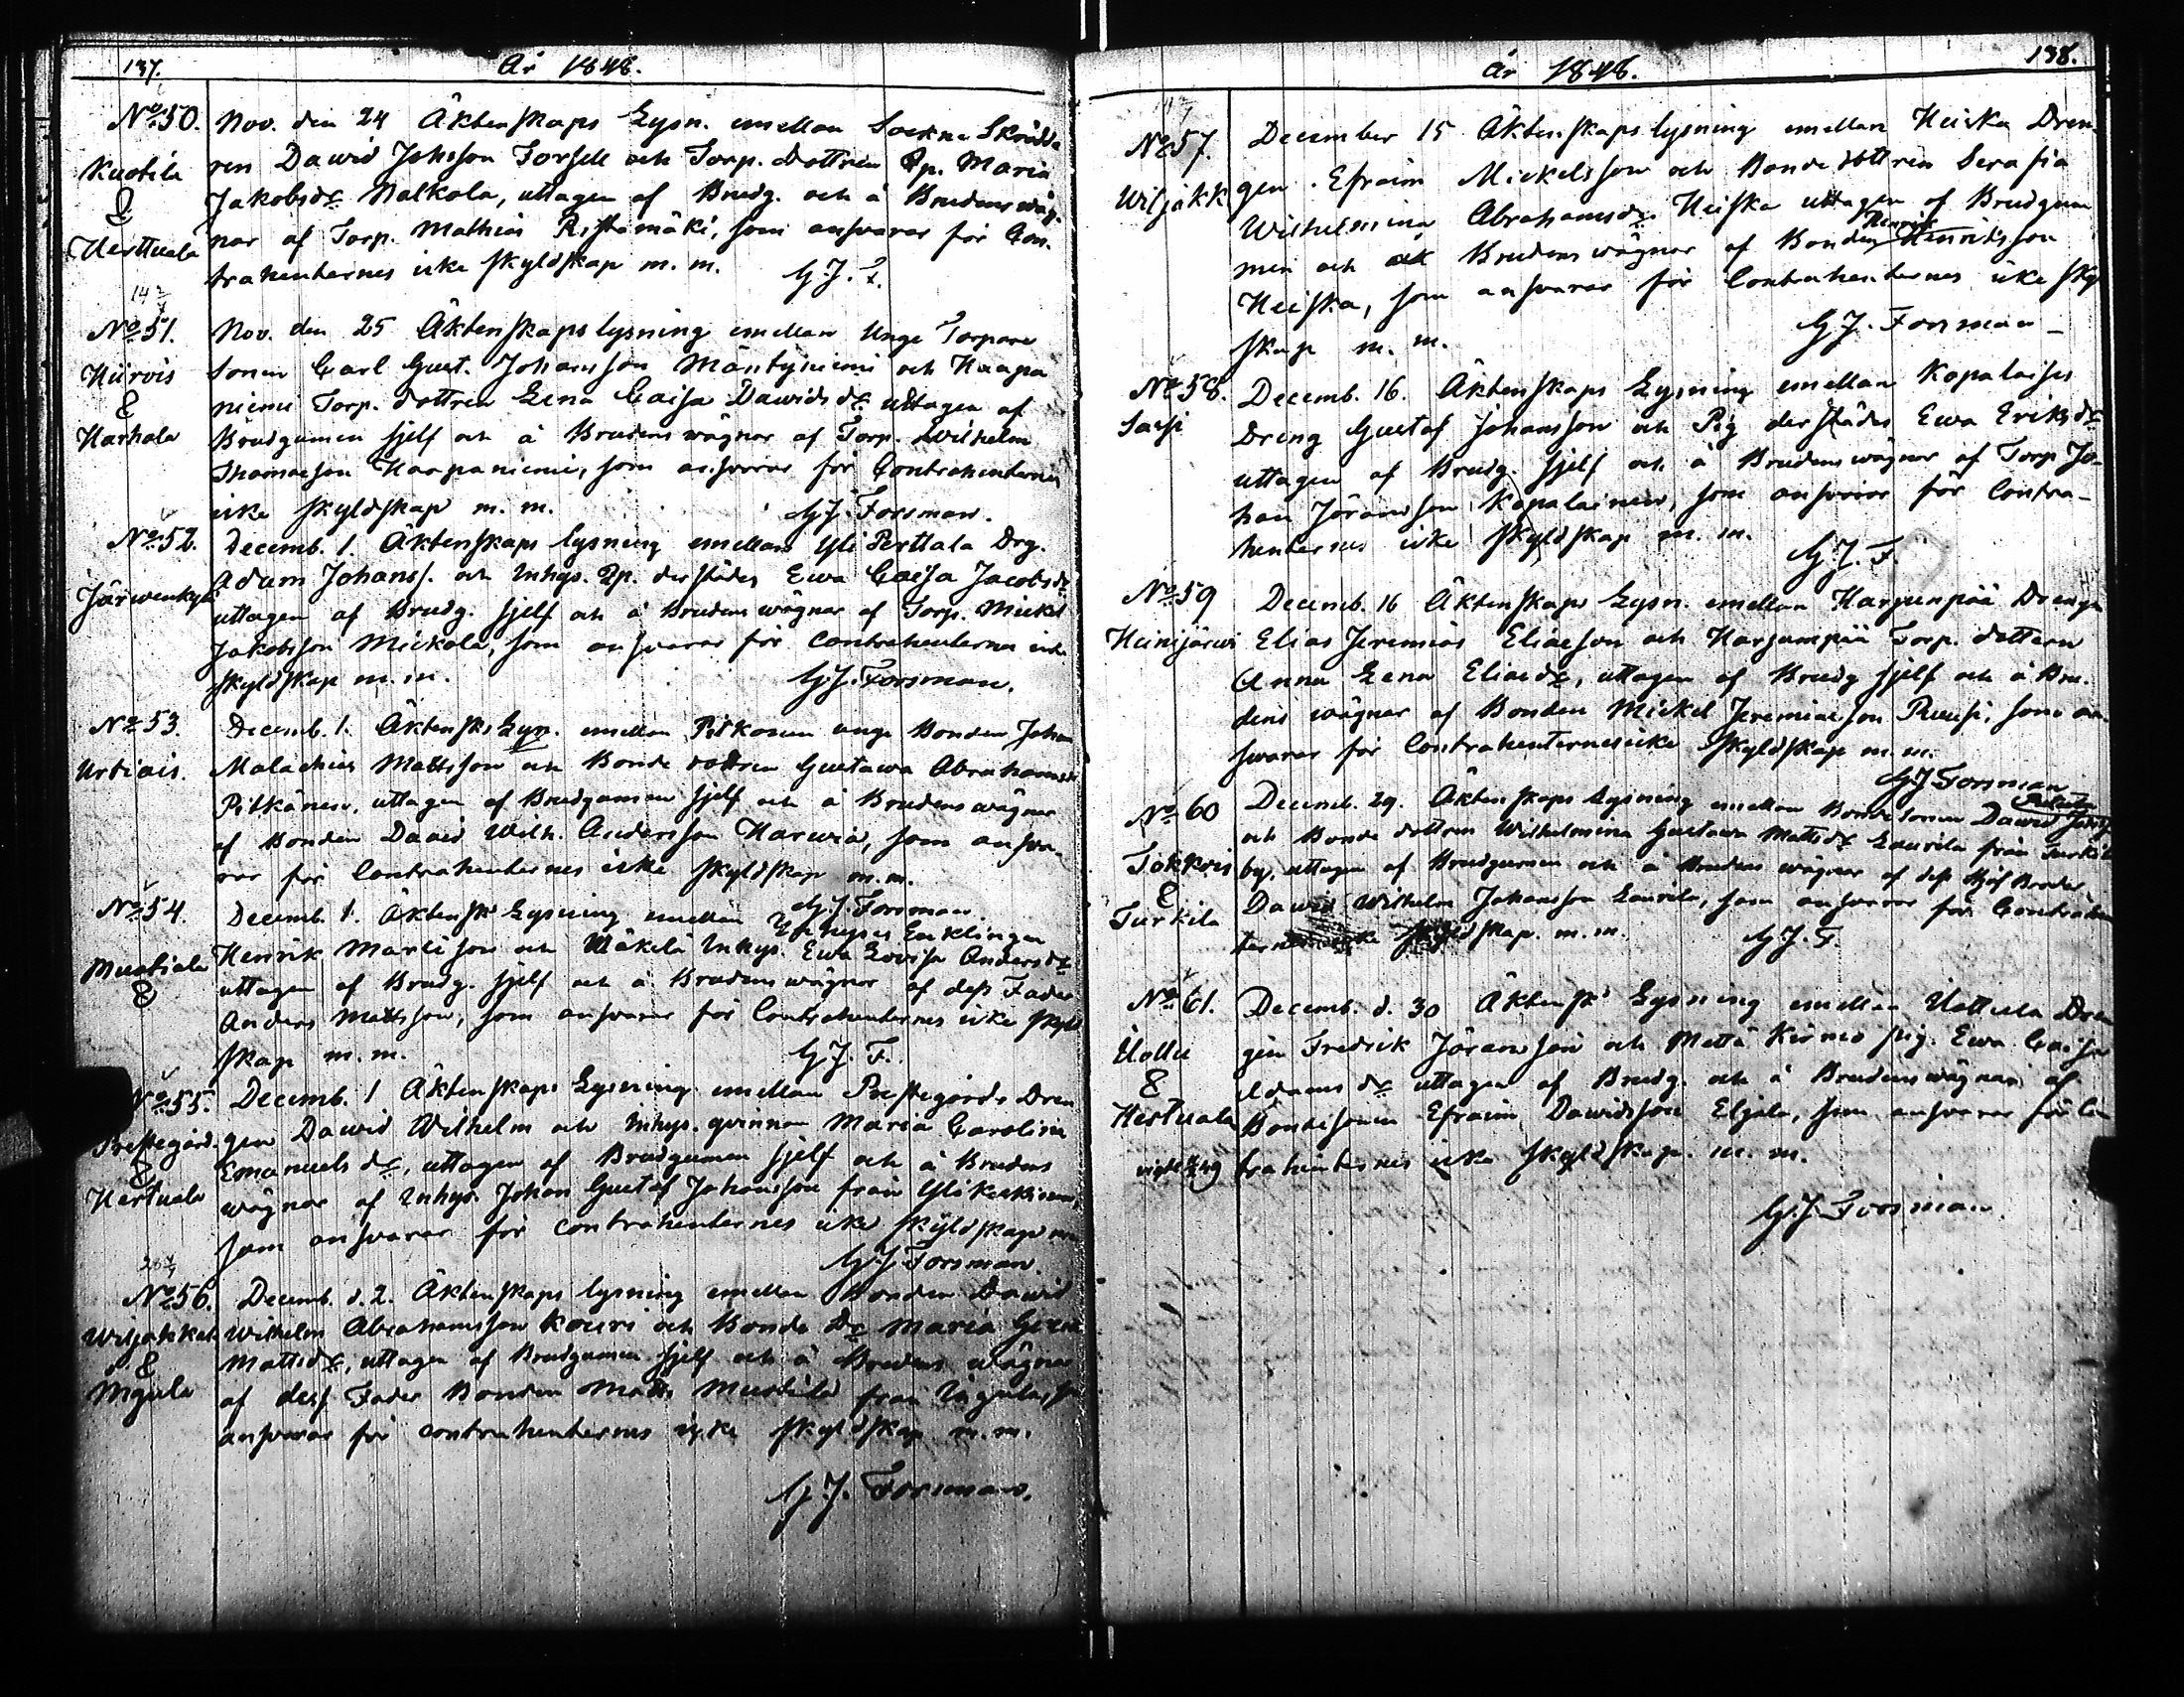 137.
År 1848.
No 50. Nov. den 24 Äktenskaps Lysn. emellan Sockne Skrädda
Kuotila ren Dawid Johsson Forsell och Torp. dottren Qp. Maria
& Jakobsdr Nalkola, uttagen af Brudg. och å Brudens wäg-
Herttuala nar af Torp. Mathias Ristamäki, som answarar för Con-
trahenternes icke skyldskap m. m. G. J. F.
No 51. Nov. den 25 Äktenskaps lysning emellan Unge Torpare
Hiirois sonen Carl Gust. Johansson Mäntyniemi och Haapa
& niemi Torp. dottren Lena Caisa Dawidsdr uttagen af
Karhola Brudgumen sjelf och å Brudens wägnar af Torp. Wilhelm
Thomasson Haapaniemi, som answarar för Contrahenternes
icke skyldskap m. m. G. J. Forsman.
No 52. Decemb. 1. Äktenskaps lysning emellan Yli Perttala Drg.
Järwenkylä Adam Johanss. och Inhys. Qp. derstädes Ewa Caisa Jacobsdr
uttagen af Brudg. sjelf och å Brudens wägnar af Torp. Mickel
Jakobsson Mickola, som answarar för contrahenternes icke
skyldskap m. m. G. J. Forsman.
No 53. Decemb. 1. Äktensks Lysn. emellan Pitkänen unge Bonden Johan
Urtiais. Malachias Mattsson och Bonde dottren Gustawa Abrahamsdr
Pitkänen, uttagen af Brudgumen sjelf och å Brudens wägnar
af Bonden David Wilh. Andersson Harwia, som answa-
rar för Contrahenternes icke skyldskap m. m.
G. J. Forsman.
No 54. Decemb. 1. Äktensk. Lysning emellan Enklingen
Mustiala Henrik Martisson och Mäkelä Inhys. Ewa Lovisa Andersdr
& uttagen af Brudg. sjelf och å Brudens wägnar af dess Fader
Anders Mattsson, som answarar för Contrahenternes icke skyld
skap m. m. G. J. F.
No 55. Decemb. 1 Äktenskaps Lysning emellan Prestegårds Dren
Prestegård. gen Dawid Wilhelm och Inhys. qvinnan Maria Carolina
& Emanuelsdr, uttagen af Brudgumen sjelf och å Brudens
Hertuala wägnar af Inhys. Johan Gustaf Johansson från
som answarar för contrahenternes icke skyldskap m m
G. J. Forsman.
No 56. Decemb. d. 2. Äktenskaps lysning emellan Bonden Dawid
Wiljakkala Wilhelm Abrahamsson Kouri och Bonde Dr Maria
& Mattsdr, uttagen af Brudgumen sjelf och å Brudens wägnar
Mgula af dess Fader Bonden Matts Mustila från
answarar för contrahenternes icke skyldskap m. m.
G. J. Forsman.
138.
År 1848.
No 57. December 15 Äktenskaps lysning emellan Heiska Dren
Wiljakk gen Efraim Mickelsson och Bondedottren Serafia
Wilhelmina Abrahamsdr Heiska uttagen af Brudgum
men och å Brudens wägnar af Bonden Henrik Henriksson
Heiska, som answarar för Contrahenternes icke skyld
skap m. m. G. J. Forsman
No 58. Decemb. 16. Äktenskaps Lysning emellan Kopalaises
Sassi Dreng Gustaf Johansson och Pig. derstädes Ewa Eriksdr
uttagen af Brudg. sjelf och å Brudens wägnar af Torp. Jo-
han Jöransson Kopalainen, som answarar för Contra-
henternes icke skyldskap m. m. G. J. F.
No 59 Decemb. 16 Äktenskaps Lysn. emellan Harjunpää Drengen
Heinijärwi Elias Jeremias Eliasson och Harjunpää Torp. dottern
Anna Lena Eliaedr, uttagen af Brudg sjelf och å Bru-
dens wägnar af Bonden Mickel Jeremiasson Ruusi, som an-
swarar för Contrahenternes icke skyldskap m. m.
G J Forsman
No 60 Decemb. 29. Äktenskaps Lysning emellan Bondesonen Dawid
Tokkois och Bonde dottren Wilhelmina Gustawa Mattsdr Laurila från Turkila
& by, uttagen af Brudgumen och å Brudens wägnar af dess Broder
Turkila Dawid Wilhelm Johansson Laurila, som answarar för Contrahen
ternes icke skyldskap. m. m. G. J. F.
No 61. Decemb. d. 30 Äktensk. Lysning emellan Uottuala Dren
Uollu gen Fredrik Jöransson och Mattä Kirmo pig. Ewa Caisa
& Adamsdr uttagen af Brudg. och å Brudens wägnar af
Hertuala Bondesonen Efraim Dawidsson Eljala, som answarar för Con
trahenternes icke skyldskap. m. m.
G. J. Forsman.